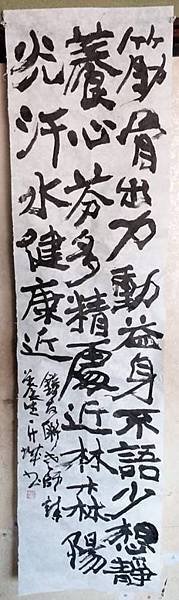 筋骨出力動益身不語少想靜
養心芬多精處近林森陽
光汗水健康近